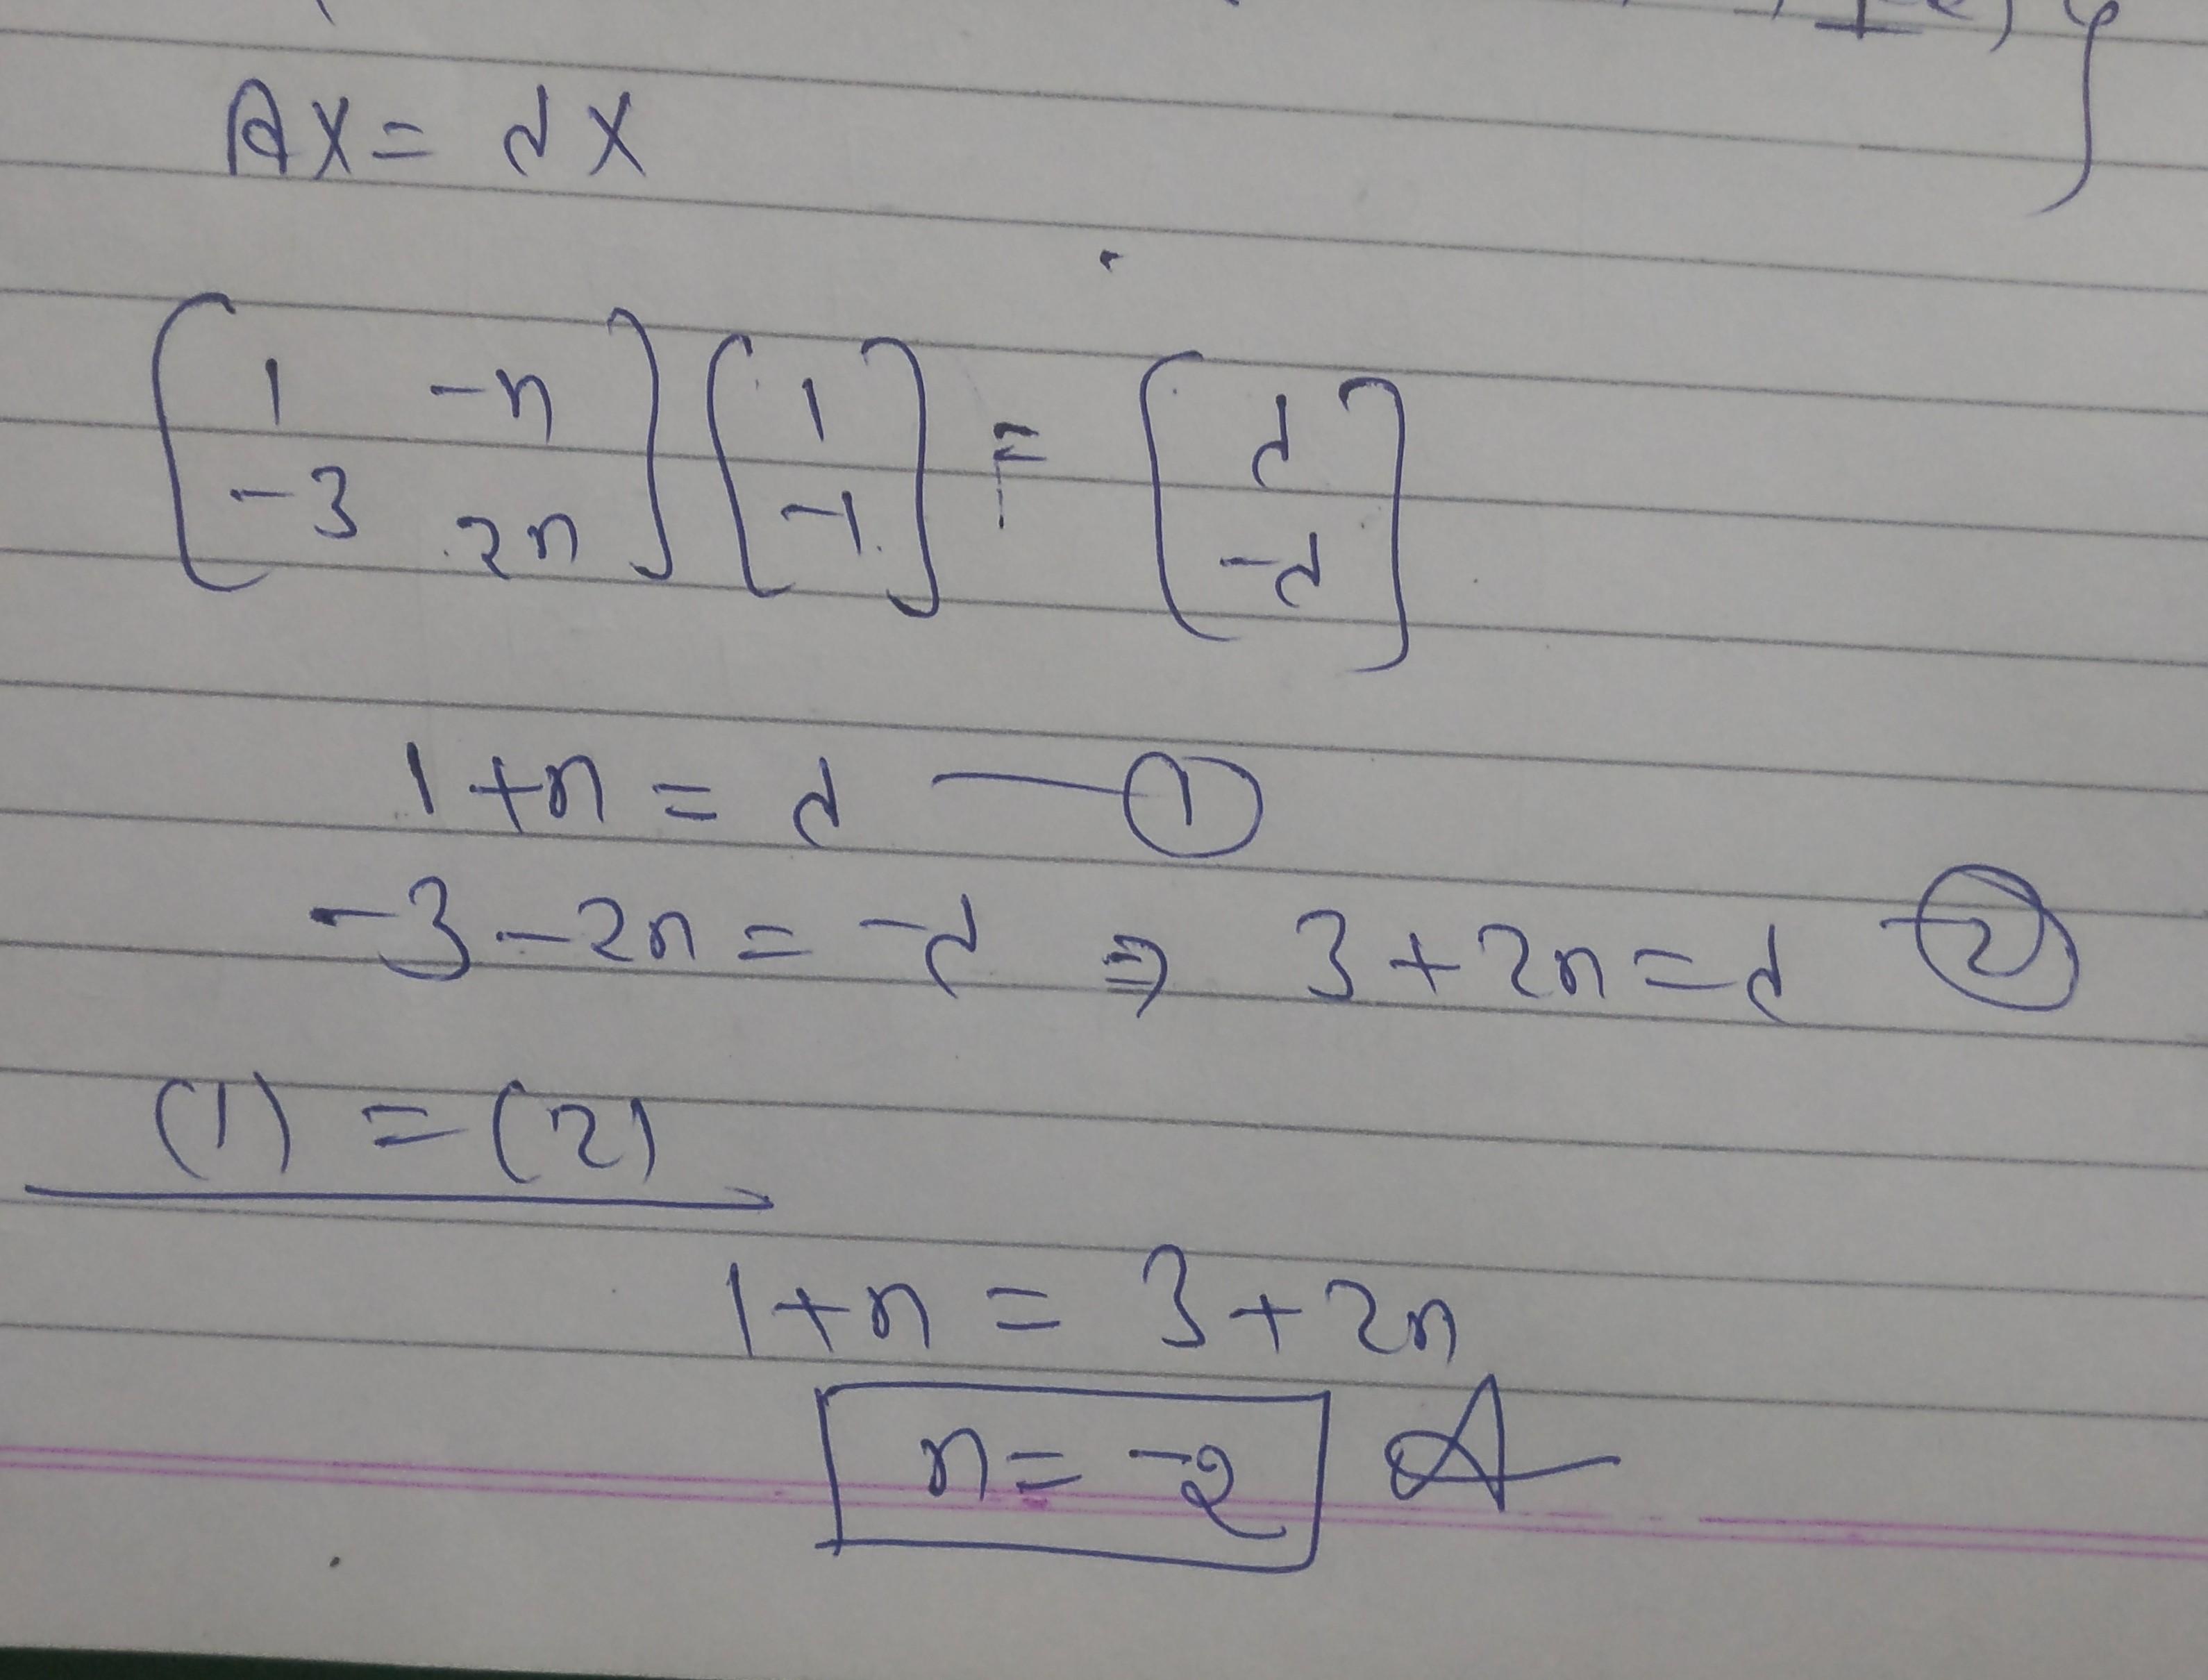 AX = dX
[1 -n -3 2n] [1 -1] = [d -d]
1 + n = d — ①
-3 - 2n = -d ⇒ 3 + 2n = d — ②
(1) = (2)
1 + n = 3 + 2n
n = -2 A